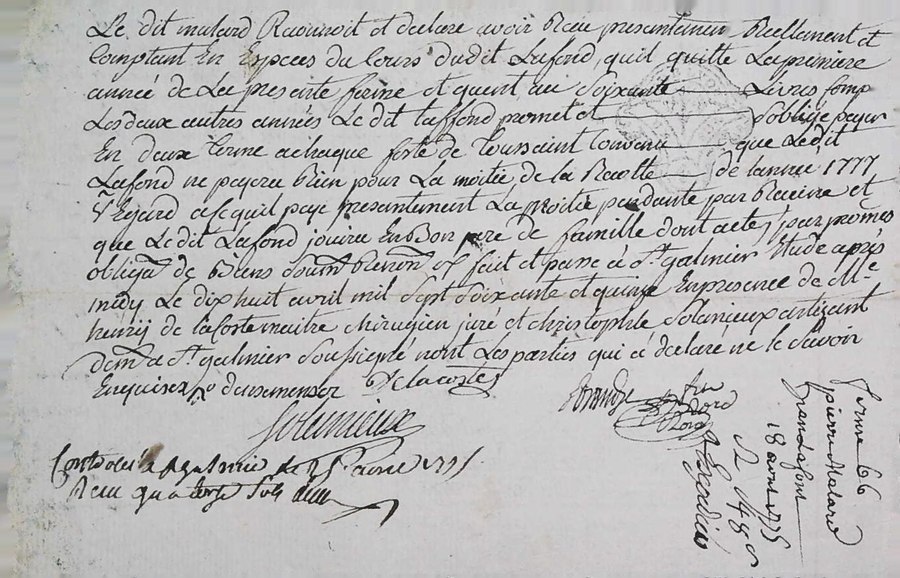 Le dit malard Reconnoit et declare avoir Receu presentemen Reellement et
Comptant En Especes du Cours dudit Lafond, quil quitte La premiere
année de La presente ferme et quent au Soixante Livres pour
Les deux autres années Le dit Laffond promet et s'oblige payer
En deux terme a chaque feste de Toussaint Convenu que Ledit
Lafond ne payera Rien pour La moitié de la Recolte de lannee 1777
L'Egard a ce quil paye presentement La moitié pendante par Racine et
que Le dit Lafond jouira En Bon pere de famille dont acte, par promes
obligaõn de Biens Soumõn Renonõn &c fait et passé à St galmier Etude après
midy Le dix huit avril mil Sept Soixante et quinze En presence de Me
henry de la Coste maitre chirugien juré et christophle Solanieux artizant
demt a St galmier Soussigné nont Les parties qui a declare ne le Scavoir
Enquises Delacoste
Solanieux
Controlé a St galmier le 25 avril 1775
Receu quatorze Sols
ferme 66
pierre Malard
Jean Lafont
18 avril 1775
Expediée